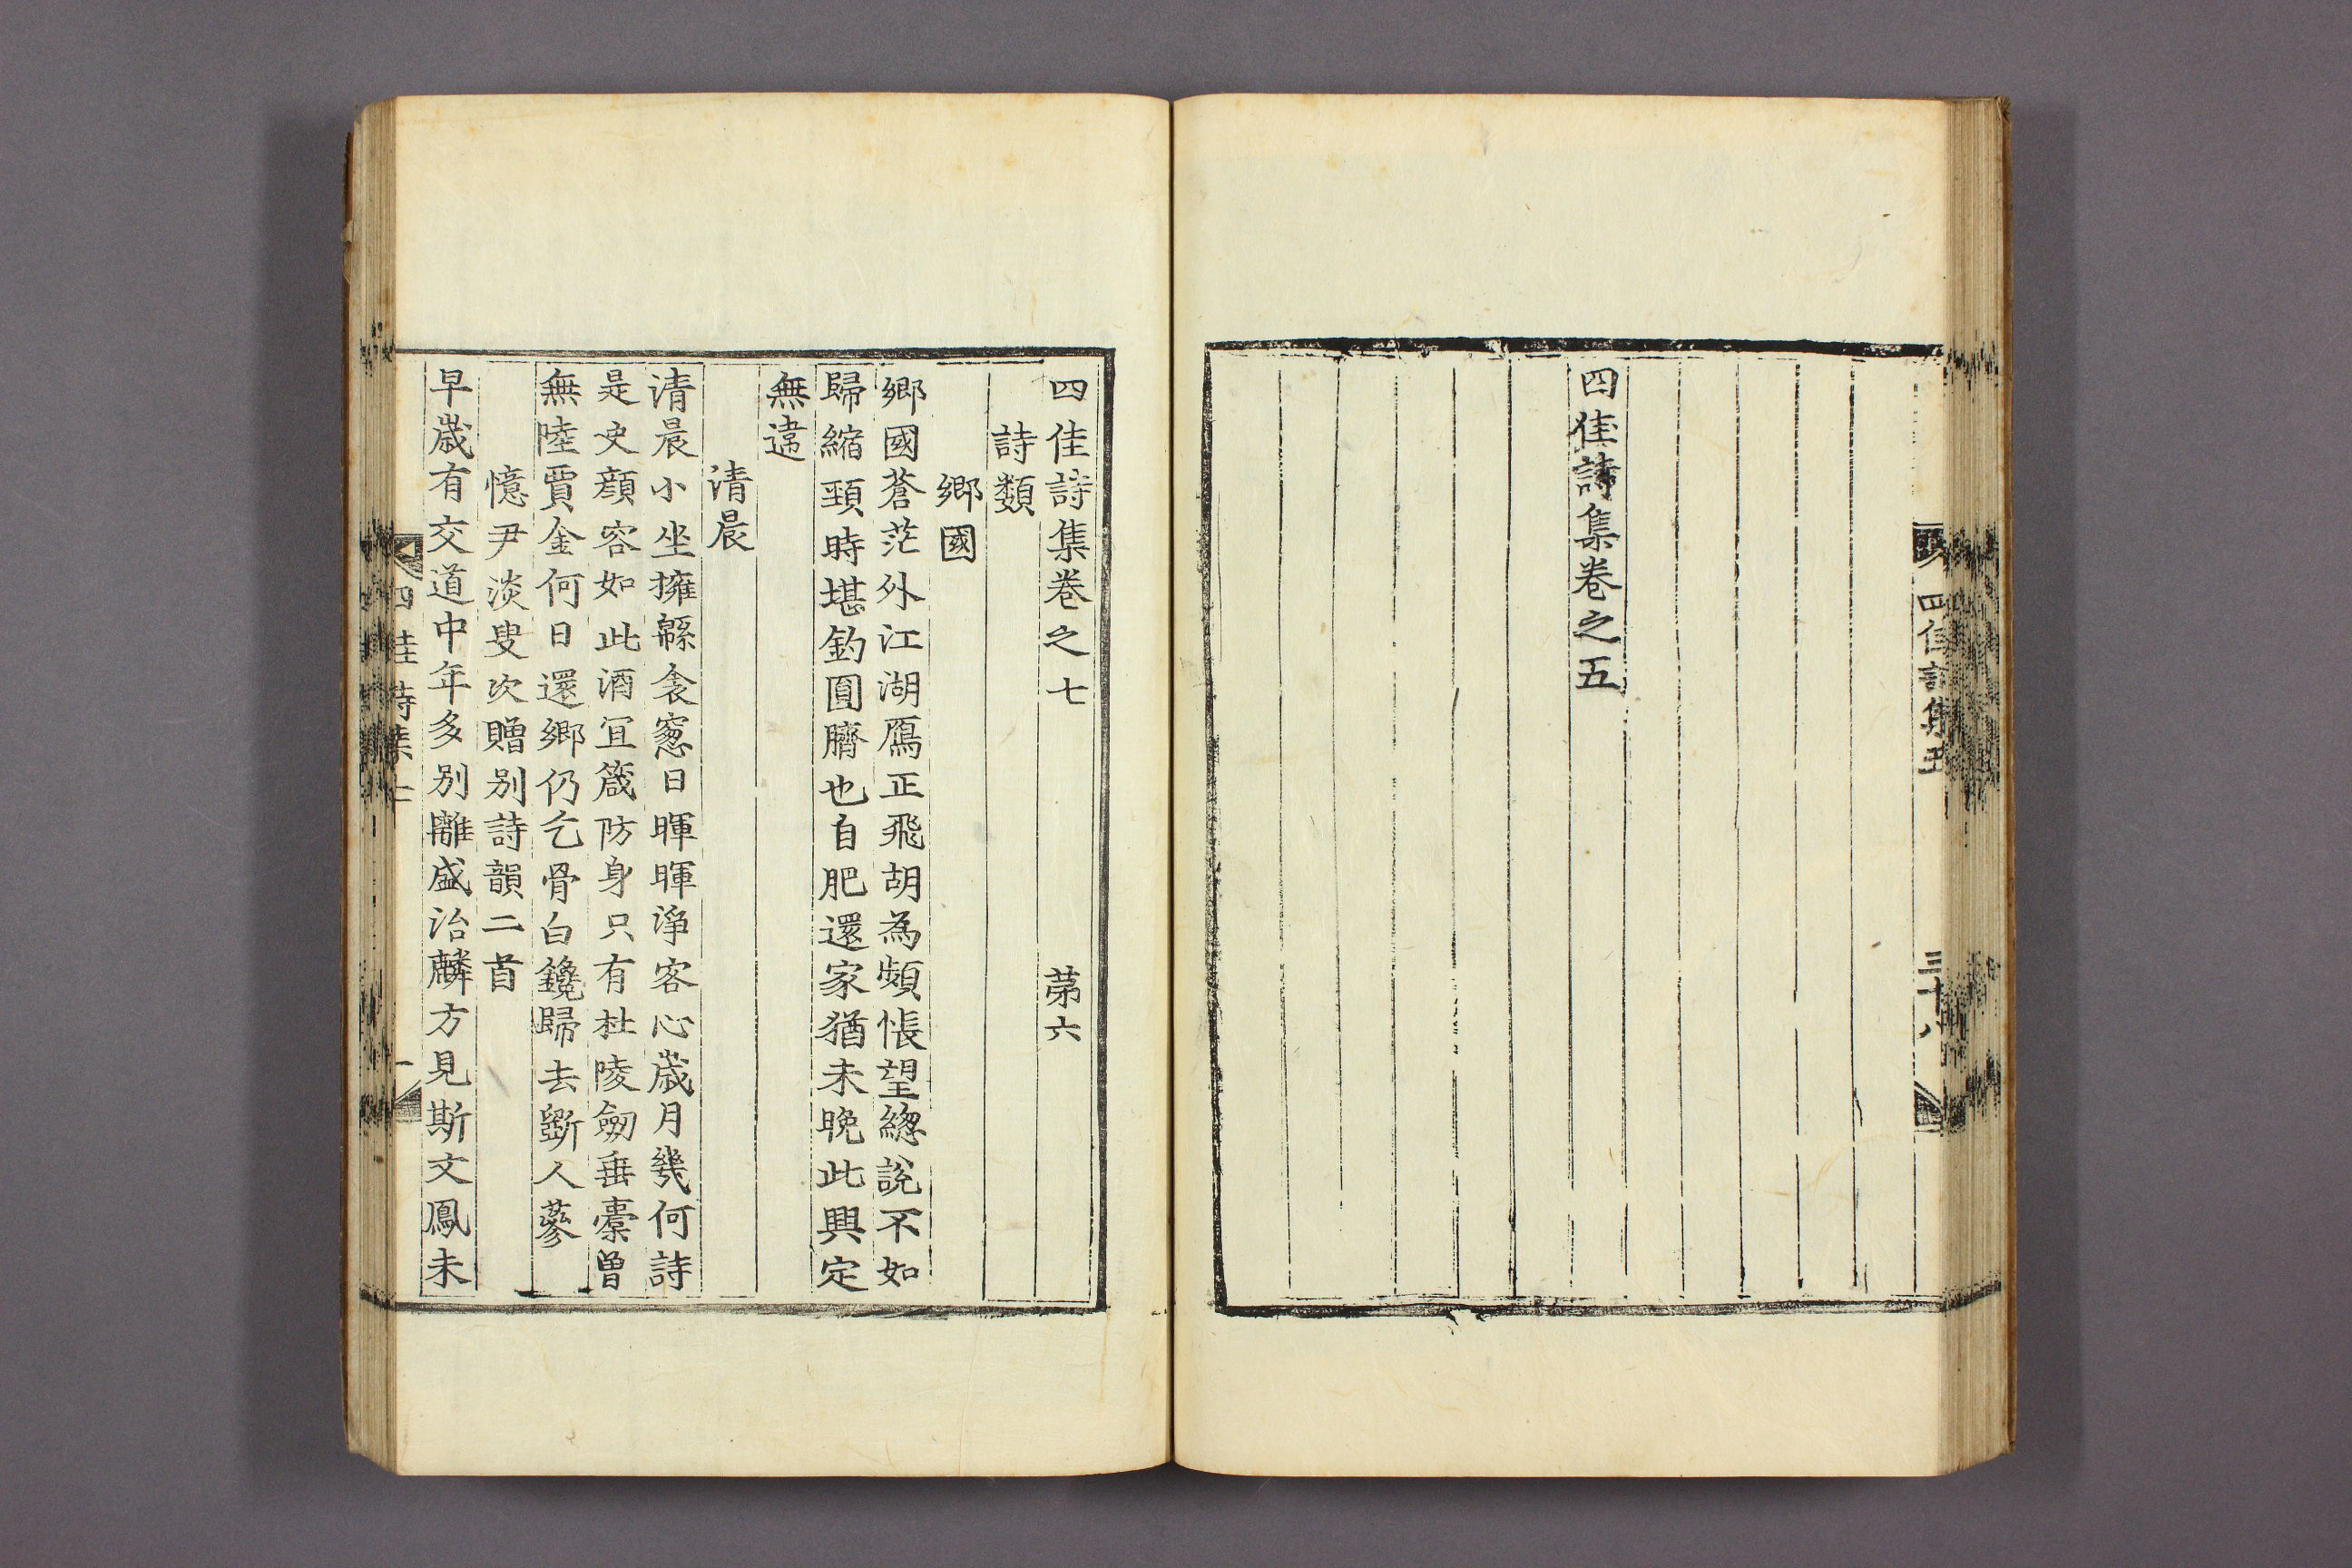 四佳詩集五
三十八
四佳詩集卷之五
四佳詩集卷之七 苐六
詩類
鄉國
鄉國蒼茫外江湖鴈正飛胡為頻悵望緫說不如
歸縮頚時堪釣圓臍也自肥還家猶未晚此興定
無違
清晨
清晨小坐擁緜衾窓日暉暉淨客心歲月幾何詩
是史顔容如此酒冝箴防身只有杜陵劒垂槖曽
無陸賈金何日還鄉仍乞骨白鑱歸去斵人蔘
憶尹淡叟次贈别詩韻二首
早歲有交道中年多别離盛治麟方見斯文鳳未
四佳詩集七
一